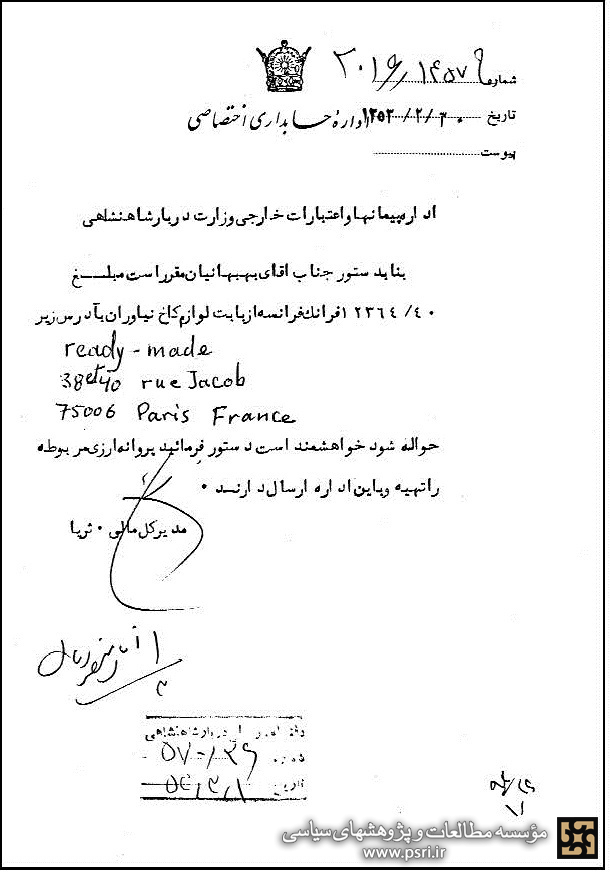 شماره
تاریخ ۱۳۵۳/۲/۳۰
ادارهٔ حسابداری اختصاصی
پیوست
اداره پیمانها و اعتبارات خارجی وزارت دربار شاهنشاهی
بنا بدستور جناب اقای بهبهانیان مقرر است مبلغ
۱۲۳۶۴/۴۰ فرانک فرانسه از بابت لوازم کاخ نیاوران بآدرس زیر
ready-made
38 et 40 rue Jacob
75006 Paris France
حواله شود خواهشمند است دستور فرمائید پروانه ارزی مربوطه
را تهیه و باین اداره ارسال دارند ۰
مدیر کل مالی ۰ ثریا
دربار شاهنشاهی
شماره
تاریخ
مؤسسه مطالعات و پژوهشهای سیاسی
www.psri.ir